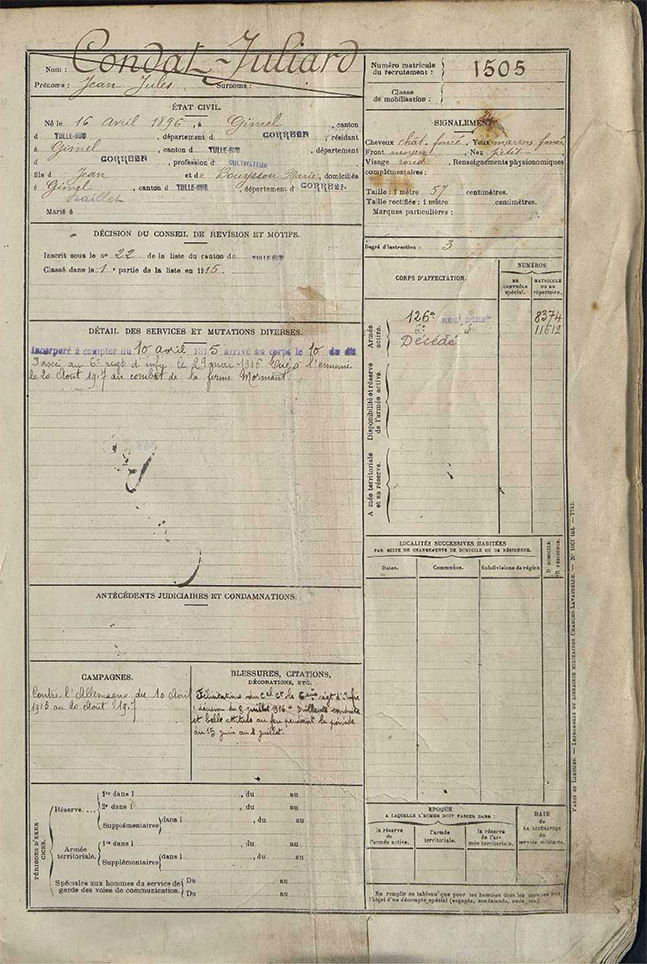 Nom : Condat-Juliard
Prénoms : Jean Jules Surnoms :
ÉTAT CIVIL.
Né le 16 Avril 1896, à Gimel, canton
d TULLE-SUD, département d CORREZE, résidant
à Gimel, canton d TULLE-SUD, département
d CORREZE, profession d CULTIVATEUR
fils d Jean et de Bouysson Marie, domiciliés
à Gimel, canton d TULLE-SUD, département d CORREZE.
Marié à
DÉCISION DU CONSEIL DE REVISION ET MOTIFS.
Inscrit sous le n° 22 de la liste du canton de TULLE-SUD
Classé dans la 1e partie de la liste en 1915.
DÉTAIL DES SERVICES ET MUTATIONS DIVERSES.
Incorporé à compter du 10 avril 1915 arrivé au corps le 10 du dit
Passé au 6e regt d'infie le 29 mai 1916 Tué à l'ennemi
le 20 Août 1917 au combat de la ferme Mormont.
ANTÉCÉDENTS JUDICIAIRES ET CONDAMNATIONS
CAMPAGNES.
Contre l'Allemagne du 10 Avril
1915 au 20 Août 1917
BLESSURES, CITATIONS,
DÉCORATIONS, ETC.
Félicitations du Cel Ct le 6ème régt d'Infie
(décision du 8 juillet 1916
et belle attitude au feu pendant la période
du 15 juin au 2 juillet.
PÉRIODES D'EXERCICES.
Réserve....
1re dans l , du au
2e dans l , du au
Supplémentaires dans l , du au
Du au
Armée territoriale.
1re dans l , du au
Supplémentaires dans l , du au
Du au
Spéciales aux hommes du service de
garde des voies de communication.
Du au
Du au
Numéro matricule
du recrutement : 1505
Classe
de mobilisation :
SIGNALEMENT.
Cheveux chât. foncé, Yeux marron foncé
Front moyen, Nez petit
Visage rond, Renseignements physionomiques
complémentaires :
Taille : 1 mètre 57 centimètres.
Taille rectifiée : 1 mètre centimètres.
Marques particulières :
Degré d'instruction : 3
CORPS D'AFFECTATION.
NUMÉROS
AU CONTRÔLE spécial.
MATRICULE OU AU répertoire.
Armée active.
126e REGt D'INFie 8374
6e d° 11612
Décédé
Disponibilité et réserve
de l'armée active.
Armée territoriale
et sa réserve.
LOCALITÉS SUCCESSIVES HABITÉES
PAR SUITE DE CHANGEMENTS DE DOMICILE OU DE RÉSIDENCE.
Dates. Communes. Subdivisions de région
D. DOMICILE.
R. RÉSIDENCE.
ÉPOQUE
A LAQUELLE L'HOMME DOIT PASSER DANS :
la réserve
de l'armée active.
l'armée
territoriale.
la réserve
de l'armée territoriale.
DATE
de
LA LIBÉRATION
du
service militaire.
Ne remplir ce tableau que pour les hommes dont les services font
l'objet d'un décompte spécial (engagés, condamnés, omis, etc.)